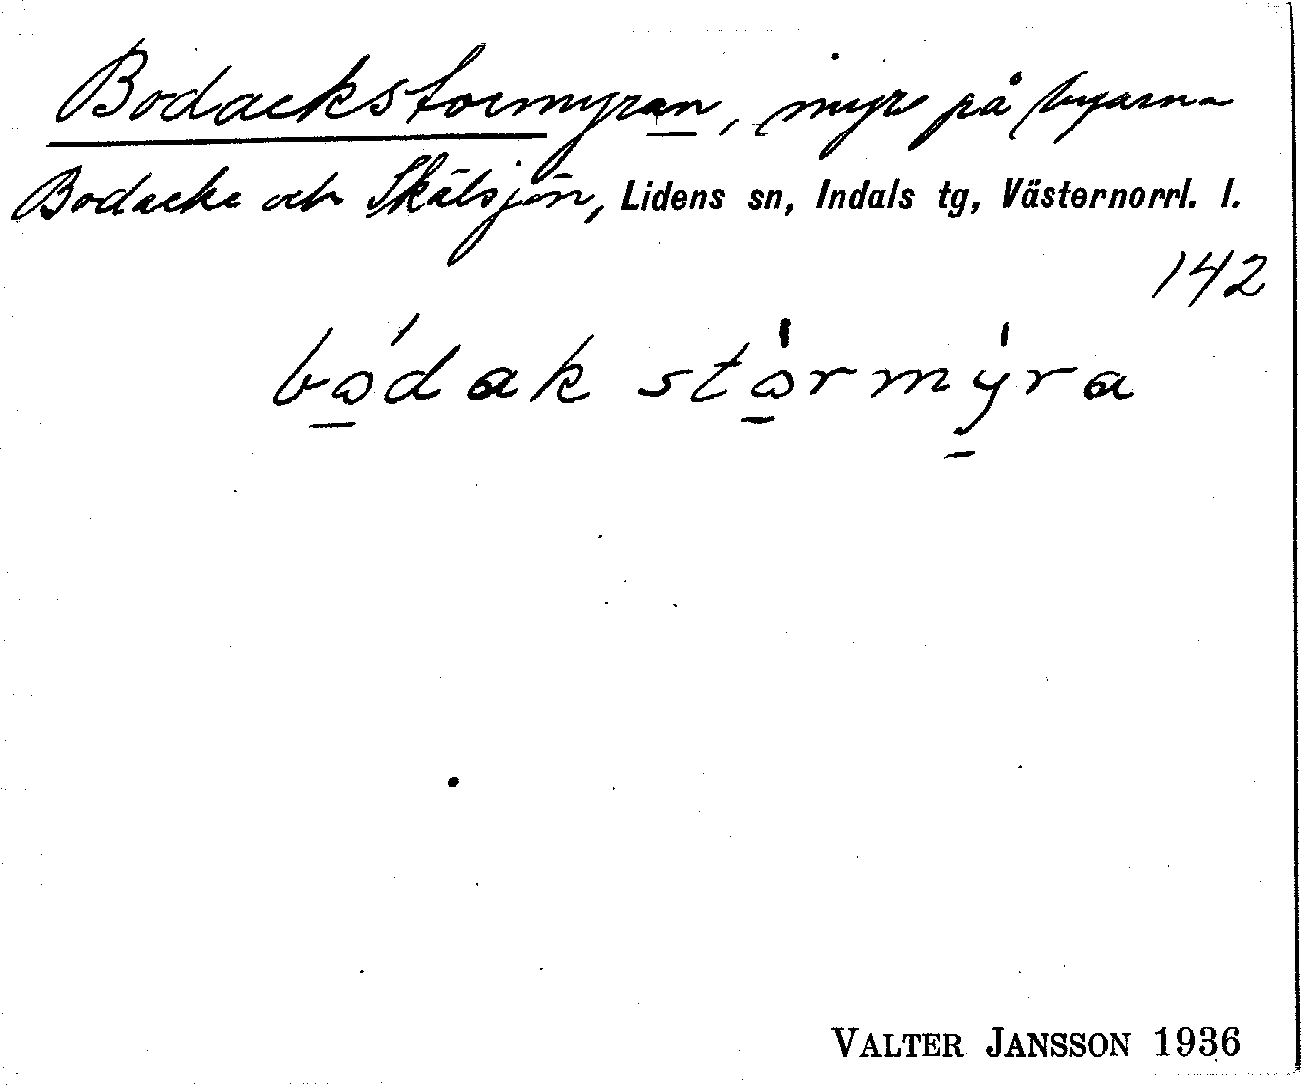 Bodackstormyran, myr på byarna
Bodacke och Skälsjön, Lidens sn, Indals tg, Västernorrl. l.
142
bó̲dak sto̲̍rmy̲̍ra
VALTER JANSSON 1936